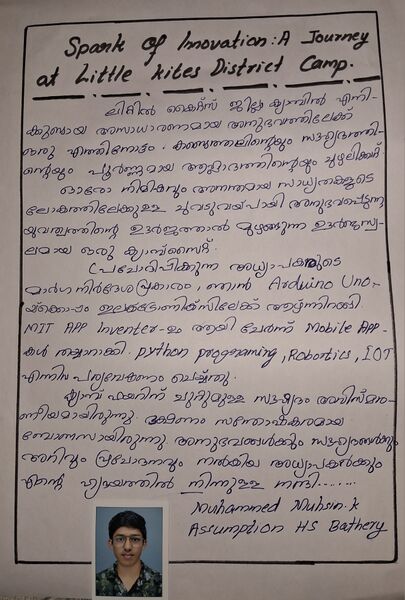 Spark Of Innovation : A Journey
at Little kites District Camp.
ലിറ്റിൽ കൈറ്റ്സ് ജില്ലാ ക്യാമ്പിൽ എനി-
ക്കുണ്ടായ അസാധാരണമായ അനുഭവത്തിലേക്ക്
ഒരു എത്തിനോട്ടം. കണ്ടെത്തലിന്റെയും സൗഹൃദത്തി-
ന്റെയും പൂർണ്ണമായ ആഹ്ലാദത്തിന്റെയും ചുഴലിക്കാറ്റ്
ഓരോ നിമിഷവും അനന്തമായ സാധ്യതകളുടെ
ലോകത്തിലേക്കുള്ള ചുവടുവയ്പായി അനുഭവപ്പെടുന്ന
യുവത്വത്തിന്റെ ഊർജ്ജത്താൽ മുഴങ്ങുന്ന ഊർജ്ജസ്വ-
ലമായ ഒരു ക്യാമ്പ്സൈറ്റ്.
പ്രചോദിപ്പിക്കുന്ന അധ്യാപകരുടെ
മാർഗനിർദേശപ്രകാരം, ഞാൻ Arduino Uno-
യ്ക്കൊപ്പം ഇലക്ട്രോണിക്സിലേക്ക് ആഴ്ന്നിറങ്ങി.
MIT APP Inventer-ഉം ആയി ചേർന്ന് Mobile APP-
കൾ തയ്യാറാക്കി. python programing, Robortics, IOT
എന്നിവ പര്യവേക്ഷണം ചെയ്തു.
ക്യാമ്പ് ഫയറിന് ചുറ്റുമുള്ള സൗഹൃദം അവിസ്മര-
ണീയമായിരുന്നു. ഭക്ഷണം സന്തോഷകരമായ
ബോണസായിരുന്നു അനുഭവങ്ങൾക്കും സൗഹൃദങ്ങൾക്കും
അറിവും പ്രചോദനവും നൽകിയ അധ്യാപകർക്കും
എന്റെ ഹൃദയത്തിൽ നിന്നുള്ള നന്ദി.......
Muhammed Muhsin.k
Assumption HS Bathery